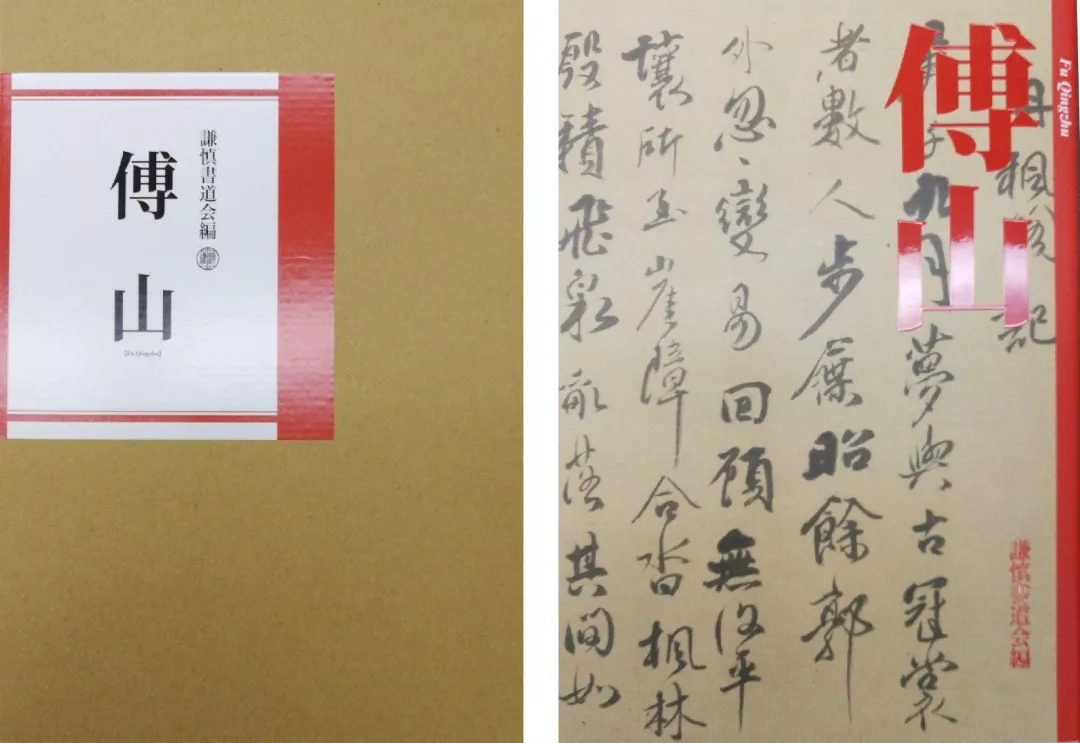 謙慎書道会編
傅山
[Fu Qingzhu]
傅山
Fu Qingzhu
丹楓閣記
子九月夢與古冠裳
者數人步屧昭餘郭
外忽〻變易回顧無復平
壤所至山崖障合沓楓林
殷積飛泉亂落其間如
謙慎書道会編